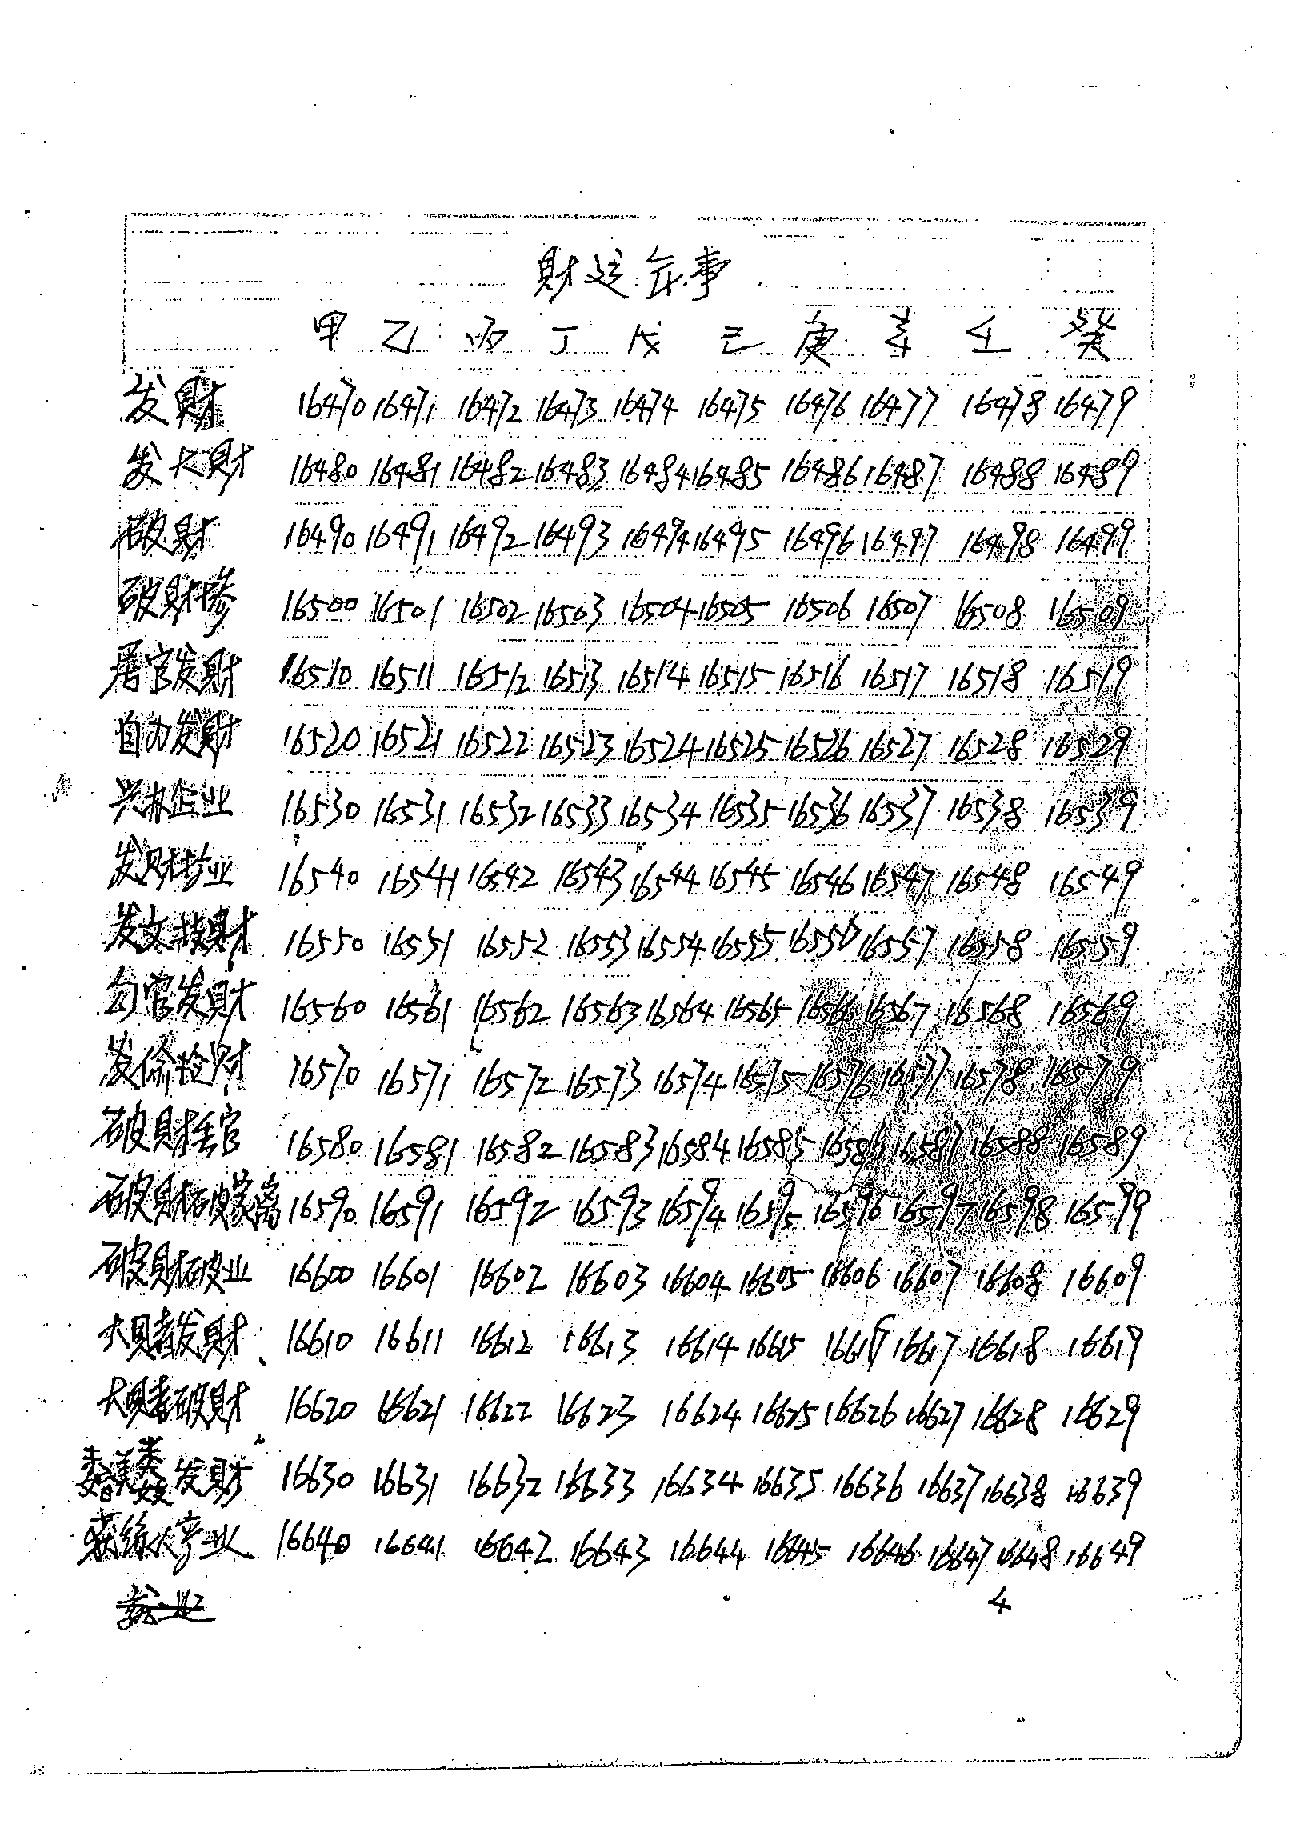 财运年事
甲 乙 丙 丁 戊 己 庚 辛 壬 癸
发财 16470 16471 16472 16473 16474 16475 16476 16477 16478 16479
发大财 16480 16481 16482 16483 16484 16485 16486 16487 16488 16489
破财 16490 16491 16492 16493 16494 16495 16496 16497 16498 16499
破财惨 16500 16501 16502 16503 16504 16505 16506 16507 16508 16509
官发财 16510 16511 16512 16513 16514 16515 16516 16517 16518 16519
自力发财 16520 16521 16522 16523 16524 16525 16526 16527 16528 16529
兴办企业 16530 16531 16532 16533 16534 16535 16536 16537 16538 16539
发财 业 16540 16541 16542 16543 16544 16545 16546 16547 16548 16549
发文 财 16550 16551 16552 16553 16554 16555 16556 16557 16558 16559
勾官发财 16560 16561 16562 16563 16564 16565 16566 16567 16568 16569
发偷抢财 16570 16571 16572 16573 16574 16575 16576 16577 16578 16579
破财丢官 16580 16581 16582 16583 16584 16585 16586 16587 16588 16589
破财破家离 16590 16591 16592 16593 16594 16595 16596 16597 16598 16599
破财破业 16600 16601 16602 16603 16604 16605 16606 16607 16608 16609
大赌发财 16610 16611 16612 16613 16614 16615 16616 16617 16618 16619
大赌破财 16620 16621 16622 16623 16624 16625 16626 16627 16628 16629
发财 16630 16631 16632 16633 16634 16635 16636 16637 16638 16639
获 人产业 16640 16641 16642 16643 16644 16645 16646 16647 16648 16649
4